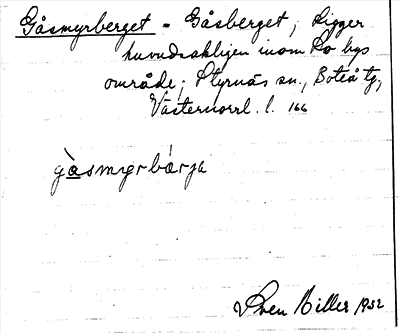 Gåsmyrberget = Gåsberget; Ligger
huvudsakligen inom Lo bys
område; Styrnäs sn., Boteå tg,
Västernorrl. l. 166
gåsmyrbärja
Sven Biller 1932